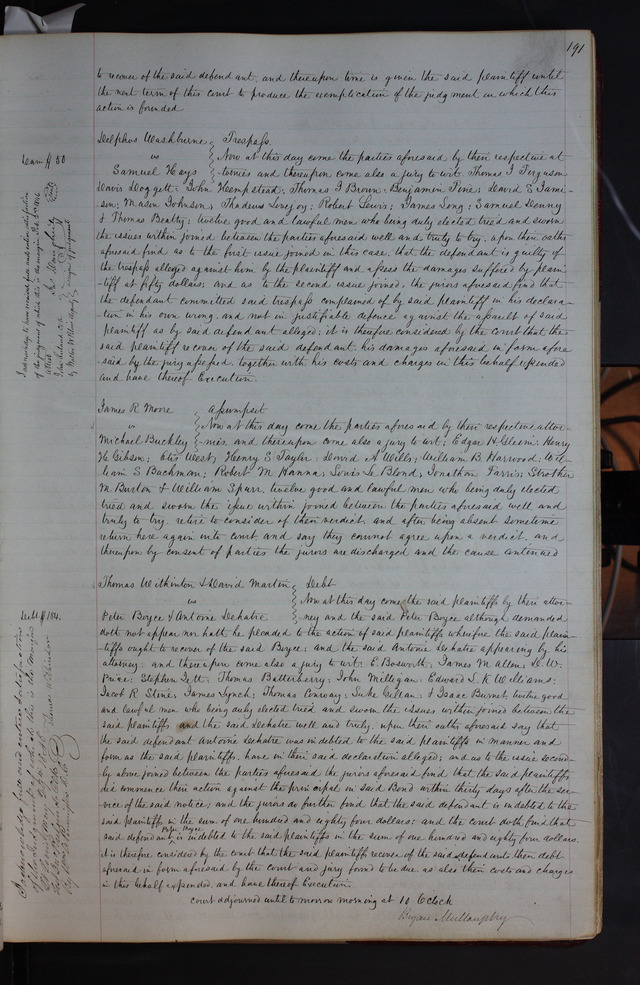 191
to recover of the said defendant, and thereupon time is given the said plaintiff until
the next term of this court to produce the exemplification of the judgment on which this
action is founded
Delphos Washburne Trespass
vs Now at this day come the parties aforesaid by their respective at
Samuel Hays tornies and thereupon come also a jury to wit, Thomas T Ferguson
Davis Doggett; John Hempstead; Thomas F Brown; Benjamin Tine; David S Jami-
son; Mason Johnson; Thadeus Lovejoy; Robert Lewis; James Long; Samuel Denny
& Thomas Beatty; twelve good and lawful men who being duly elected tried and sworn
the issues within joined between the parties aforesaid well and truly to try, upon their oaths
aforesaid find as to the first issue joined in this case, that the defendant is guilty of
the trespass alleged against him by the plaintiff and assess the damages suffered by plain
tiff at fifty dollars; and as to the second issue joined, the jurors aforesaid find that
the defendant committed said trespass complained of by said plaintiff in his declara-
tion in his own wrong, and not in justifiable defence against the assault of said
plaintiff as by said defendant alleged; it is therefore considered by the court that the
said plaintiff recover of the said defendant, his damages aforesaid in form afore
said by the jury assessed, together with his costs and charges in this behalf expended
and have thereof Execution.
Dam $ 50
James R Moore Assumpsit
vs Now at this day come the parties aforesaid by their respective attor-
Michael Buckley nies, and thereupon come also a jury to wit; Edgar H Gleim, Henry
H Gibson; Elis West; Henry S Taylor; David A Wells; William B Harwood; Wil-
liam S Buchman; Robert M Hanna; Louis Le Blond; Jonathan Farris; Strother
M. Burton & William Spurr, twelve good and lawful men who being duly elected
tried and sworn the issue within joined between the parties aforesaid well and
truly to try, retire to consider of their verdict, and after being absent sometime
return here again into court and say they cannot agree upon a verdict, and
thereupon by consent of parties the jurors are discharged and the cause continued
Thomas Withinton & David Martin Debt
vs Now at this day come the said plaintiffs by their attor-
Peter Boyce & Antoine Dehatre ney and the said Peter Boyce although demanded
doth not appear nor hath he pleaded to the action of said plaintiffs wherefore the said plain-
tiffs ought to recover of the said Boyce; and the said Antoine Dehatre appearing by his
attorney; and thereupon come also a jury to wit; E. Bosworth, James M Allen; D. W.
Price; Stephen Lett; Thomas Batterberry; John Milligan; Edward L. K Williams;
Jacob R Stine; James Lynch; Thomas Conway; Luke Gillan; & Isaac Burnet, twelve good
and lawful men who being duly elected tried and sworn the issues within joined between the
said plaintiffs and the said Dehatre well and truly, upon their oaths aforesaid say that
the said defendant Antoine Dehatre was indebted to the said plaintiffs in manner and
form as the said plaintiffs have in their said declaration alleged; and as to the issue second-
ly above joined between the parties aforesaid the jurors aforesaid find that the said plaintiffs
did commence their action against the principal in said Bond within thirty days after the ser-
vice of the said notice; and the jurors do further find that the said defendant is indebted to the
said plaintiffs in the sum of one hundred and eighty four dollars; and the court doth find that
said defendant Peter Boyce is indebted to the said plaintiffs in the sum of one hundred and eighty four dollars.
it is therefore considered by the court that the said plaintiff recover of the said defendants their debt
aforesaid in form aforesaid by the court and jury found to be due, as also their costs and charges
in this behalf expended, and have thereof Execution.
Debt $184.
court adjourned until to morrow morning at 10 Oclock
Bryan Mullanphy